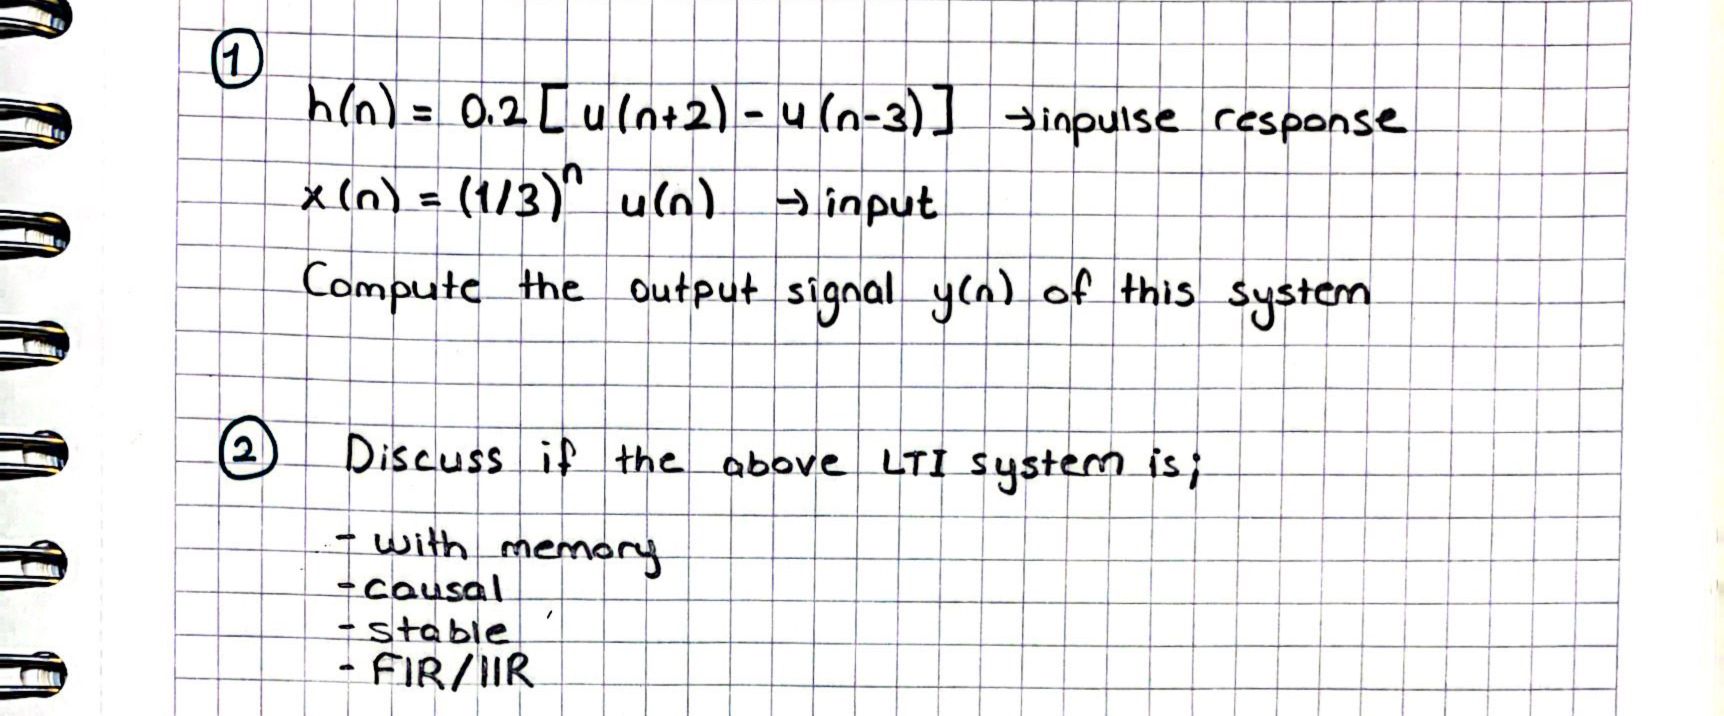 1
h(n) = 0.2 [u(n+2) - u(n-3)] → inpulse response
x(n) = (1/3)ⁿ u(n) → input
Compute the output signal y(n) of this system
2 Discuss if the above LTI system is;
- with memory
- causal
- stable
- FIR/IIR